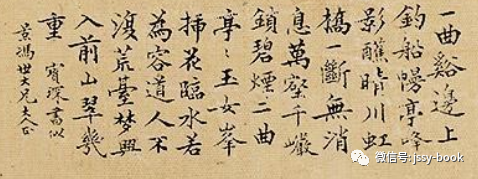 一曲谿邊上
釣船幔亭峰
影蘸晴川虹
橋一斷無消
息萬壑千巖
鎖碧煙二曲
亭〻玉女峯
插花臨水若
為容道人不
復荒臺夢興
入前山翠幾
重 寶琛書似
景馮世大兄大人正
微信号: jssy-book